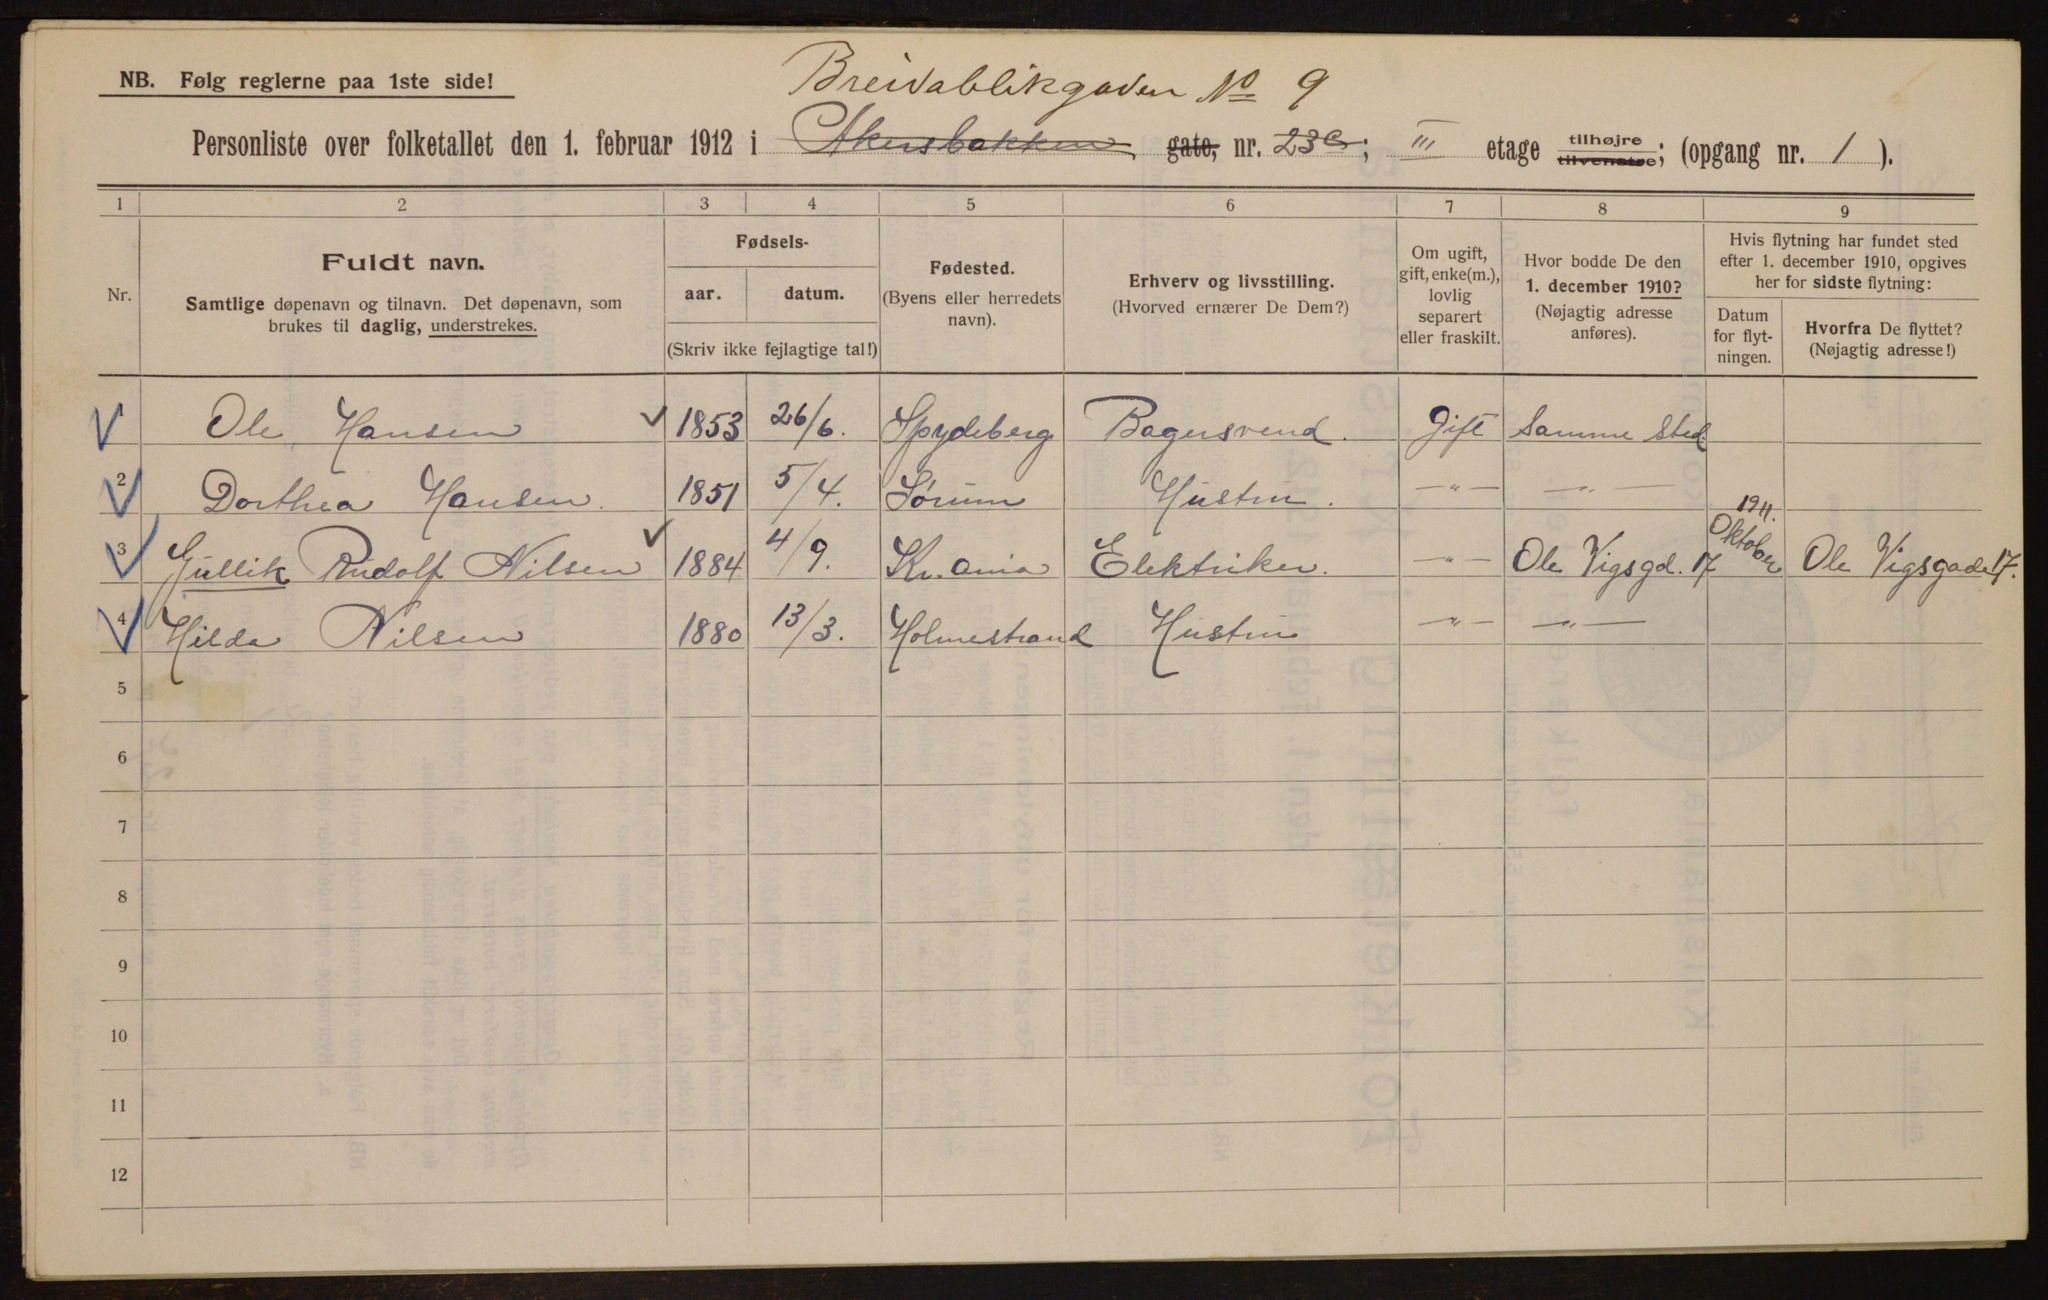 Breidablikgaden No 9
NB. Følg reglerne paa 1ste side!
Personliste over folketallet den 1. februar 1912 i Akersbakken gate, nr. 23c; III etage tilhøjre tilvenstre; (opgang nr. 1).
1 2 3 4 5 6 7 8 9
Nr.
Fuldt navn.
Samtlige døpenavn og tilnavn. Det døpenavn, som
brukes til daglig, understrekes.
Fødsels-
aar. datum.
(Skriv ikke fejlagtige tal!)
Fødested.
(Byens eller herredets
navn).
Erhverv og livsstilling.
(Hvorved ernærer De Dem?)
Om ugift,
gift, enke(m.),
lovlig
separert
eller fraskilt.
Hvor bodde De den
1. december 1910?
(Nøjagtig adresse
anføres).
Hvis flytning har fundet sted
efter 1. december 1910, opgives
her for sidste flytning:
Datum
for flyt-
ningen.
Hvorfra De flyttet?
(Nøjagtig adresse!)
1 Ole Hansen 1853 26/6. Spydeberg Bagersvend. Gift Samme Sted.
2 Dorthea Hansen. 1851 5/4. Sørum Hustru. —"— —"—
3 Gullik Rudolf Nilsen 1884 4/9. Kr.ania Elektriker. —"— Ole Vigsgd. 17 1911. Oktober Ole Vigsgade 17.
4 Hilda Nilsen 1880 13/3. Holmestrand Hustru —"— —"—
5
6
7
8
9
10
11
12